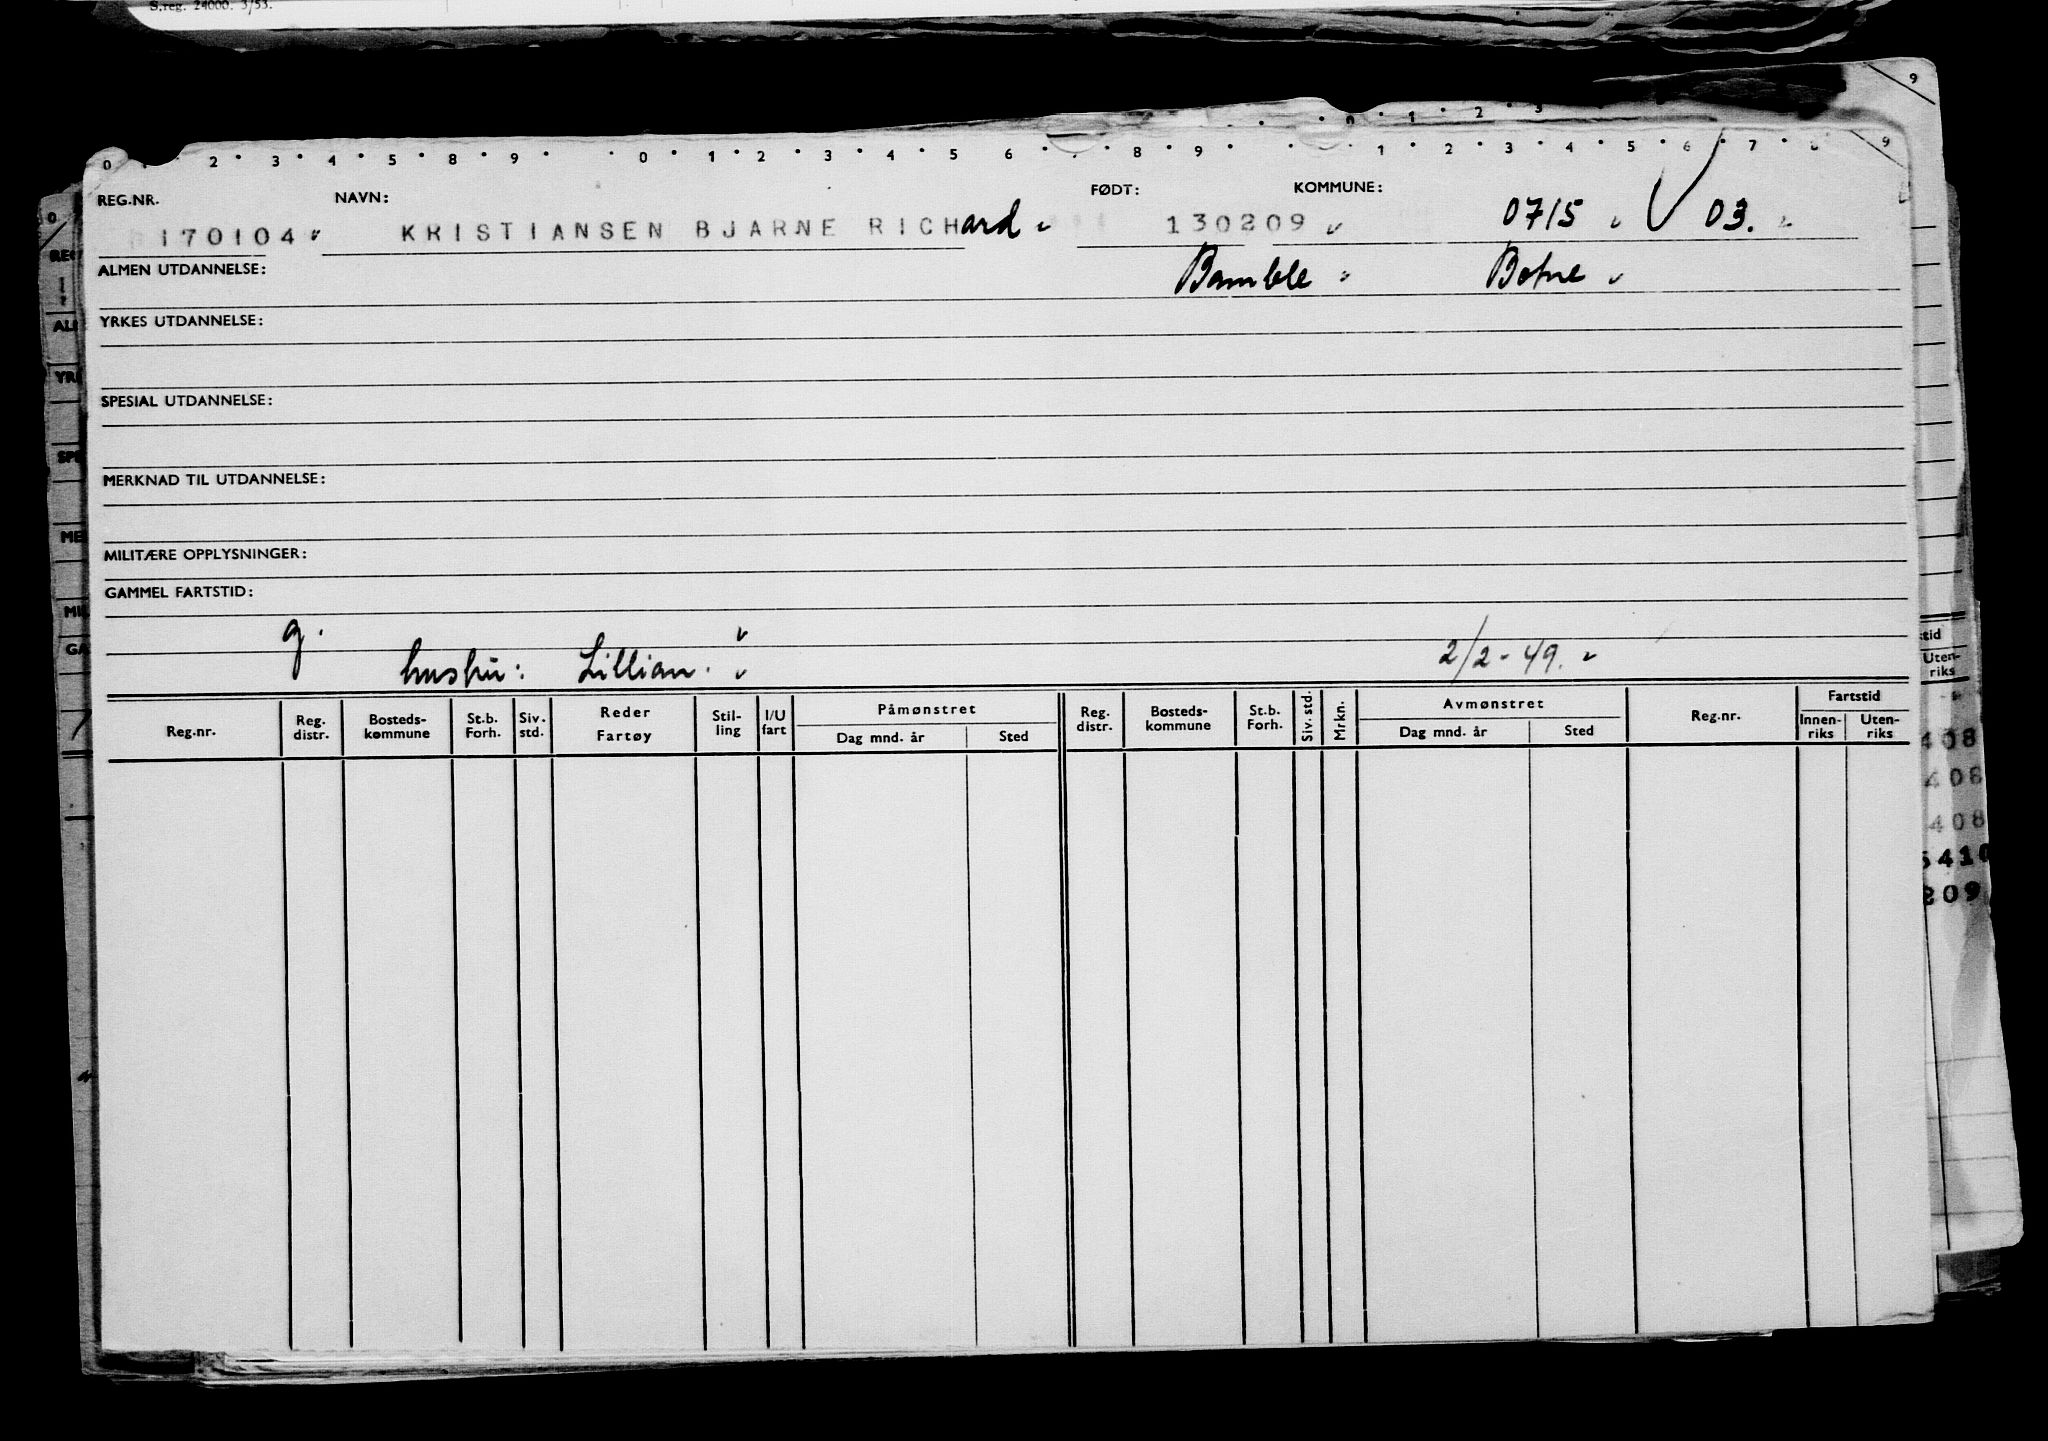 S.reg. 24000. 3/53.
9
0 1 2 3
0 2 3 4 5 8 9 0 1 2 3 4 5 6 8 9 1 2 3 4 5 6 7 8 9
REG.NR. NAVN: FØDT: KOMMUNE:
170104 KRISTIANSEN BJARNE RICHard 130209 0715 03.
ALMEN UTDANNELSE: Bamble Botne
YRKES UTDANNELSE:
SPESIAL UTDANNELSE:
MERKNAD TIL UTDANNELSE:
MILITÆRE OPPLYSNINGER:
GAMMEL FARTSTID:
g.
hustru: Lillian. 2/2-49.
Reg.nr. Reg. distr. Bosteds-kommune St.b. Forh. Siv. std. Reder Fartøy Stil-ling I/U fart Påmønstret Dag mnd. år Sted Reg. distr. Bosteds-kommune St.b. Forh. Siv. std. Mrkn. Avmønstret Dag mnd. år Sted Reg.nr. Fartstid Innen-riks Uten-riks
Uten-
riks
408
408
408
5410
209